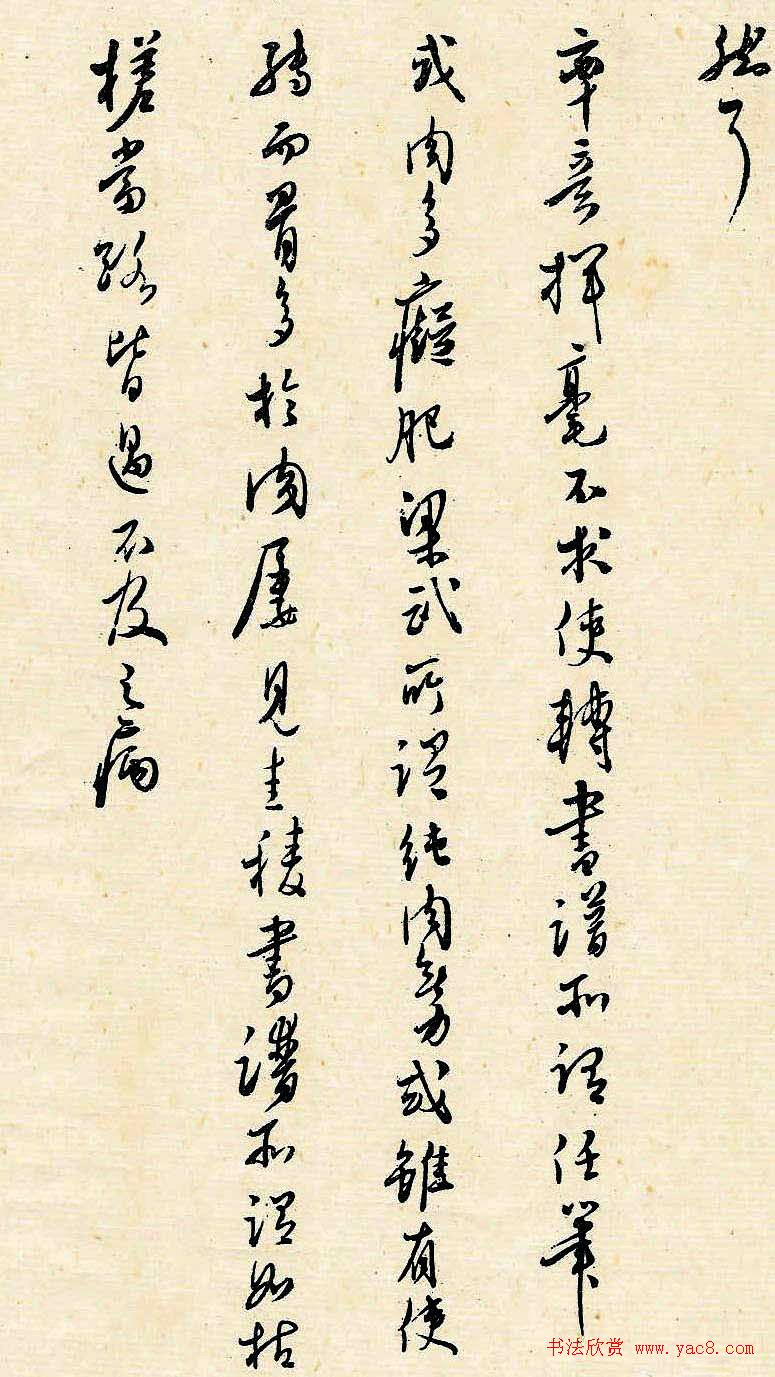 然耳
率意揮毫不求使轉書譜所謂任筆
或肉多癡肥梁武所謂純肉無力或雖有使
轉而骨多於肉屢見圭稜書譜所謂如枯
槎當路皆過不及之病
书法欣赏 www.yac8.com